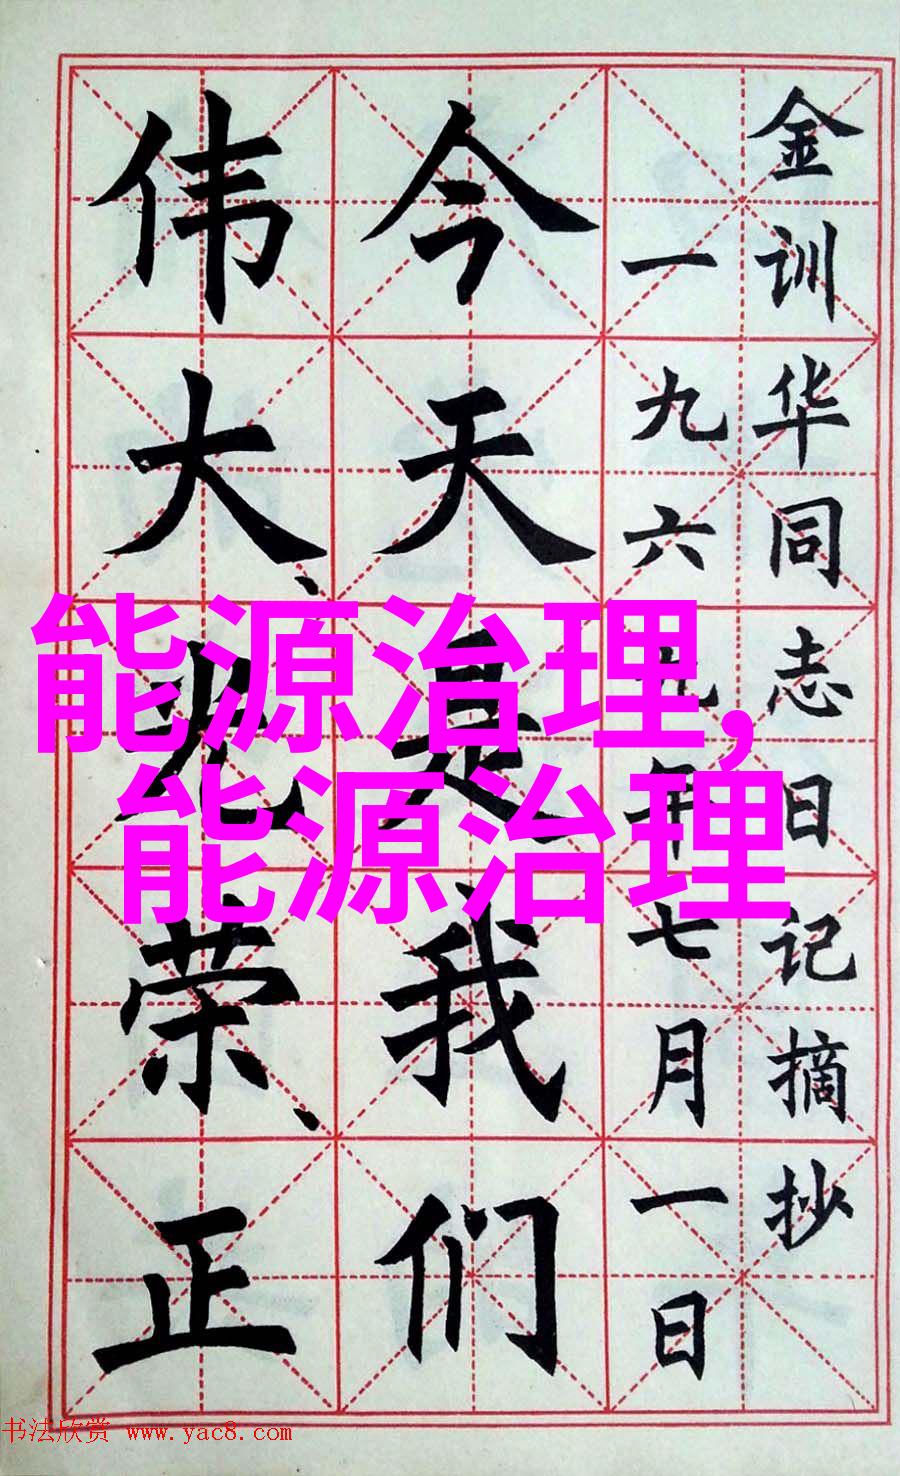 金训华同志日记摘抄
一九六九年七月一日
今天是我们
伟大、光荣、正
能源治理,
能源治理
书法欣赏 www.yac8.com